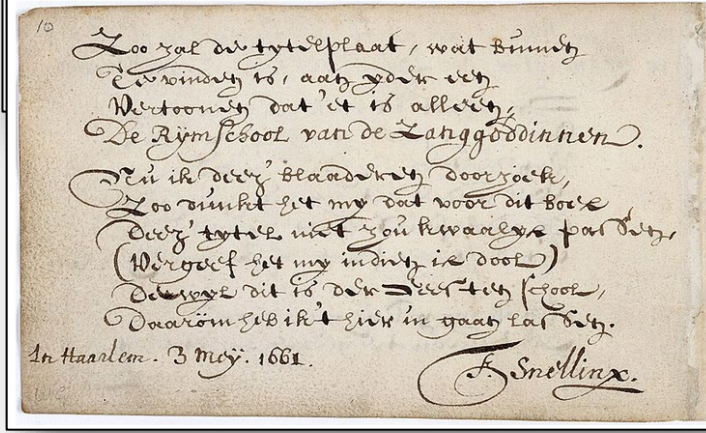 10
Zoo zal de tytelplaat, wat binnen
Te vinden is, aan yder een
Vertoonen dat'et is alleen,
De Rymschool van de Zanggoddinnen.
Nu ik deez' blaaderen doorzoek,
Zoo dunkt het my dat voor dit boek
Deez' tytel niet zou kwaalyk passen,
(Vergeef het my indien ik dool)
Dewyl dit is der Geesten school,
Daarom heb ik't hier in gaan lassen.
In Haarlem. 3 Meÿ. 1661.
Snellinx.